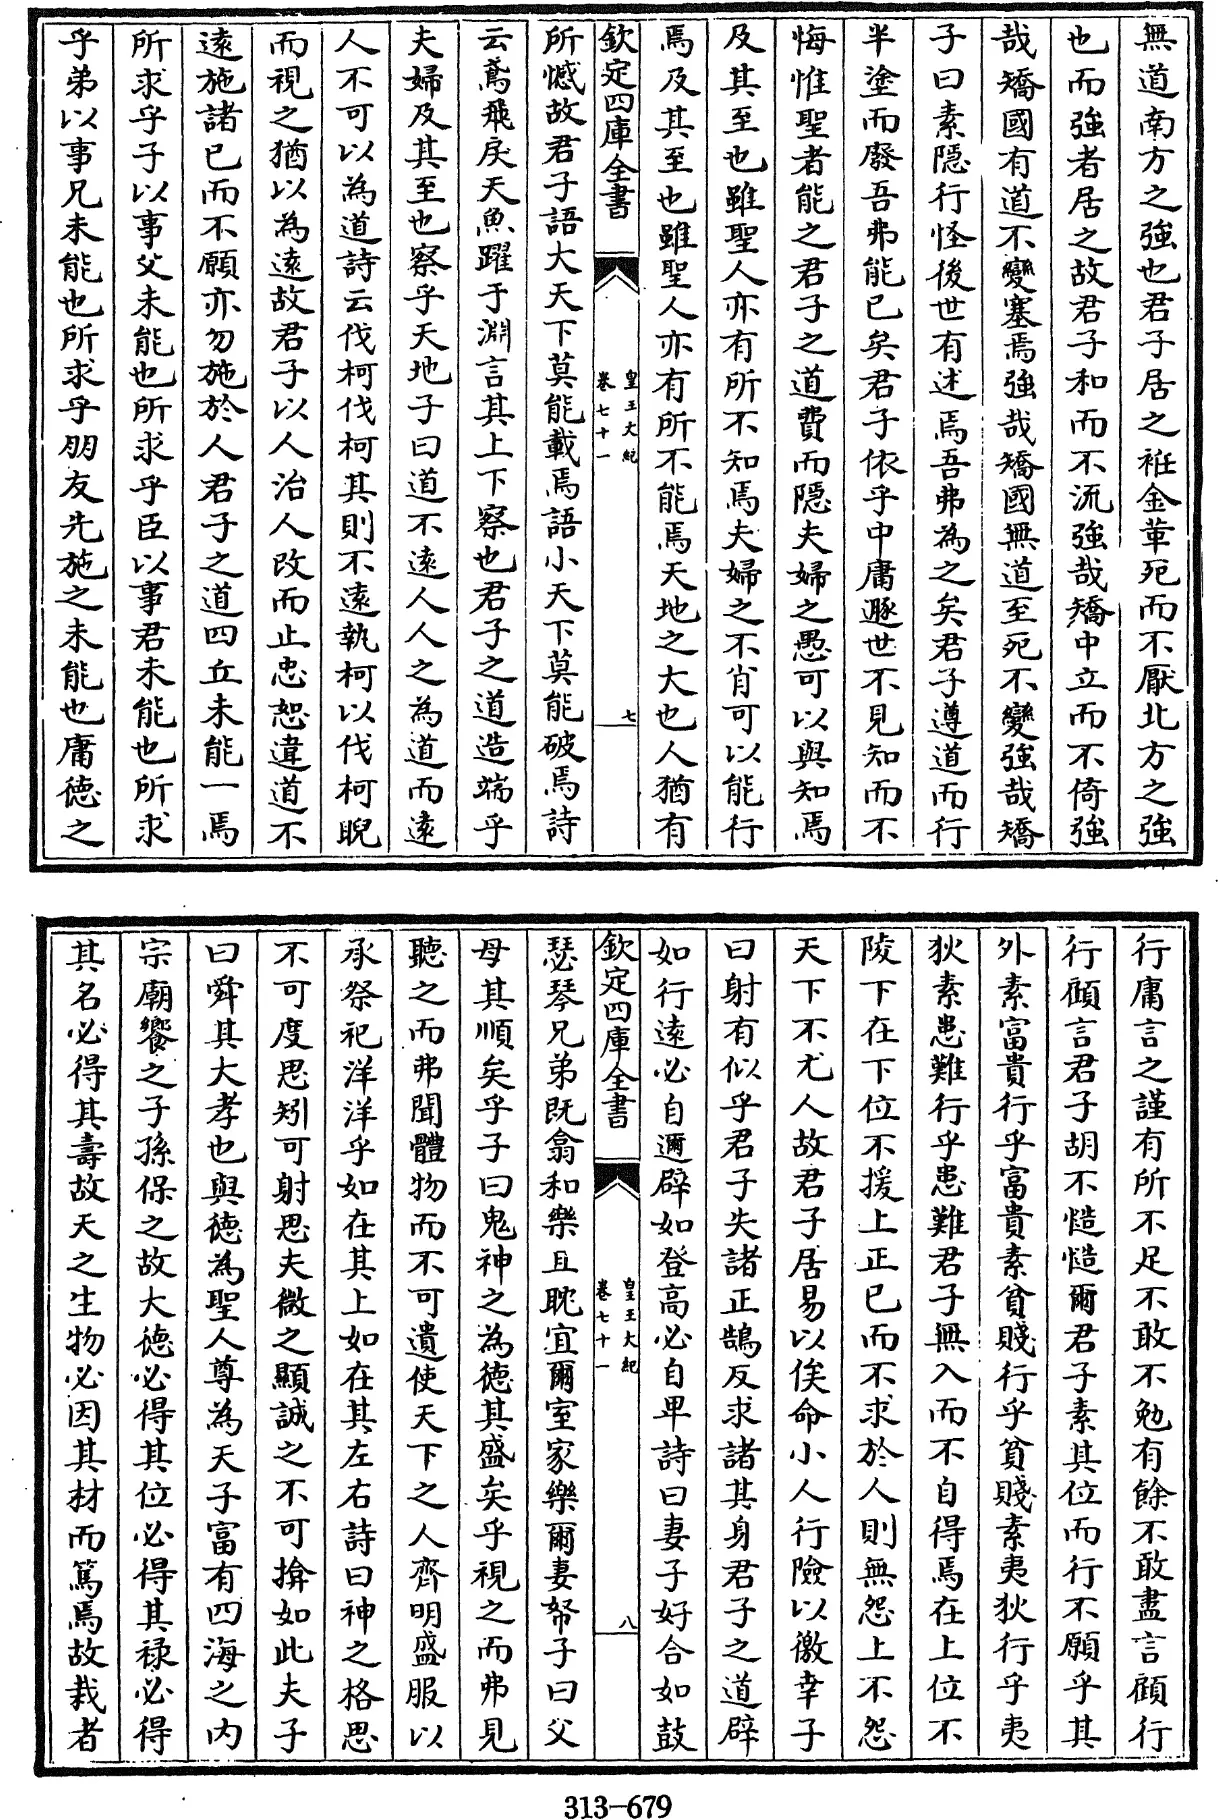 無道南方之強也君子居之衽金革死而不厭北方之強
也而強者居之故君子和而不流強哉矯中立而不倚強
哉矯國有道不變塞焉強哉矯國無道至死不變強哉矯
子曰素隱行怪後世有述焉吾弗為之矣君子遵道而行
半塗而廢吾弗能已矣君子依乎中庸遯世不見知而不
悔惟聖者能之君子之道費而隱夫婦之愚可以與知焉
及其至也雖聖人亦有所不知焉夫婦之不肖可以能行
焉及其至也雖聖人亦有所不能焉天地之大也人猶有
欽定四庫全書
皇王大紀
卷七十一
七
所憾故君子語大天下莫能載焉語小天下莫能破焉詩
云鳶飛戾天魚躍于淵言其上下察也君子之道造端乎
夫婦及其至也察乎天地子曰道不遠人人之為道而遠
人不可以為道詩云伐柯伐柯其則不遠執柯以伐柯睨
而視之猶以為遠故君子以人治人改而止忠恕違道不
遠施諸已而不願亦勿施於人君子之道四丘未能一焉
所求乎子以事父未能也所求乎臣以事君未能也所求
乎弟以事兄未能也所求乎朋友先施之未能也庸德之
行庸言之謹有所不足不敢不勉有餘不敢盡言顧行
行顧言君子胡不慥慥爾君子素其位而行不願乎其
外素富貴行乎富貴素貧賤行乎貧賤素夷狄行乎夷
狄素患難行乎患難君子無入而不自得焉在上位不
陵下在下位不援上正已而不求於人則無怨上不怨
天下不尤人故君子居易以俟命小人行險以徼幸子
曰射有似乎君子失諸正鵠反求諸其身君子之道辟
如行遠必自邇辟如登高必自卑詩曰妻子好合如鼓
欽定四庫全書
皇王大紀
卷七十一
八
瑟琴兄弟既翕和樂且耽宜爾室家樂爾妻帑子曰父
母其順矣乎子曰鬼神之為德其盛矣乎視之而弗見
聽之而弗聞體物而不可遺使天下之人齊明盛服以
承祭祀洋洋乎如在其上如在其左右詩曰神之格思
不可度思矧可射思夫微之顯誠之不可揜如此夫子
曰舜其大孝也與德為聖人尊為天子富有四海之內
宗廟饗之子孫保之故大德必得其位必得其祿必得
其名必得其壽故天之生物必因其材而篤焉故栽者
313-679